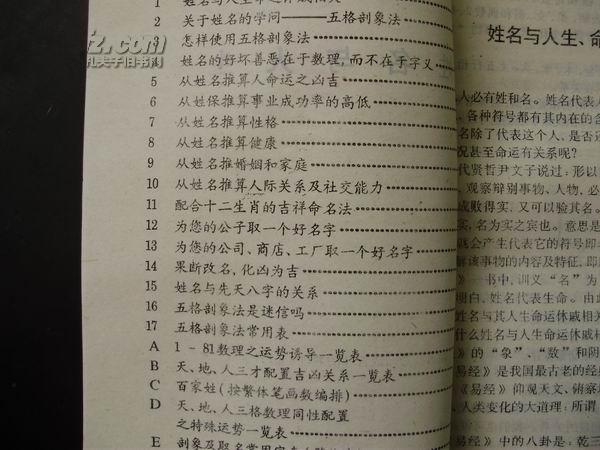 1 姓名与人生、命运休戚相关
2 关于姓名的学问——五格剖象法
3 怎样使用五格剖象法
4 姓名的好坏善恶在于数理,而不在于字义
5 从姓名推算人命运之凶吉
6 从姓保推算事业成功率的高低
7 从姓名推算性格
8 从姓名推算健康
9 从姓名推婚姻和家庭
10 从姓名推算人际关系及社交能力
11 配合十二生肖的吉祥命名法
12 为您的公子取一个好名字
13 为您的公司、商店、工厂取一个好名字
14 果断改名,化凶为吉
15 姓名与先天八字的关系
16 五格剖象法是迷信吗
17 五格剖象法常用表
A 1-81数理之运势诱导一览表
B 天、地、人三才配置吉凶关系一览表
C 百家姓(按繁体笔画数编排)
D 天、地、人三格数理同性配置
之特殊运势一览表
E 剖象及取名常用字
姓名与人生、命
人必有姓和名。姓名代表人
、各种符号都有其内在的含
名除了代表这个人,是否还
况甚至命运有关系呢?
代贤哲尹文子说过:形以
、观察辩别事物、人物,必
成败得实,又可以验其名。
实,名为实之宾也。意思是
既会产生代表它的符号即
解该事物的内容及特征,即
》一书中,训义“名”为
明白、姓名代表生命。由此
姓名与其人生命运休戚相关
什么姓名与人生命运休戚相
》的“象”、“数”和阴
易经》是我国最古老的经
《易经》仰观天文、俯察
、人类变化的大道理:所谓
易经》中的八卦是:乾三